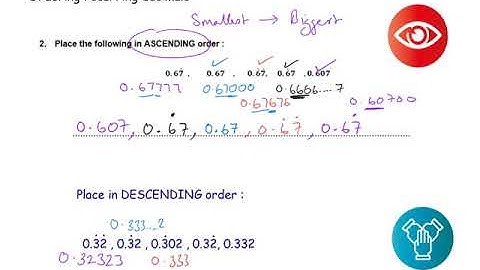 Smallest → Biggest
2. Place the following in ASCENDING order :
0.67̇ , 0.67 , 0.6̇7̇, 0.6̇7 , 0.607
0.67777 0.67000 0.6666...7
0.67676 0.60700
0.607, 0.6̇7, 0.67, 0.6̇7̇, 0.67̇
Place in DESCENDING order :
0.333...2
0.3̇2̇ , 0.3̇2 , 0.3̇02 , 0.32̇, 0.332
0.32323 0.333